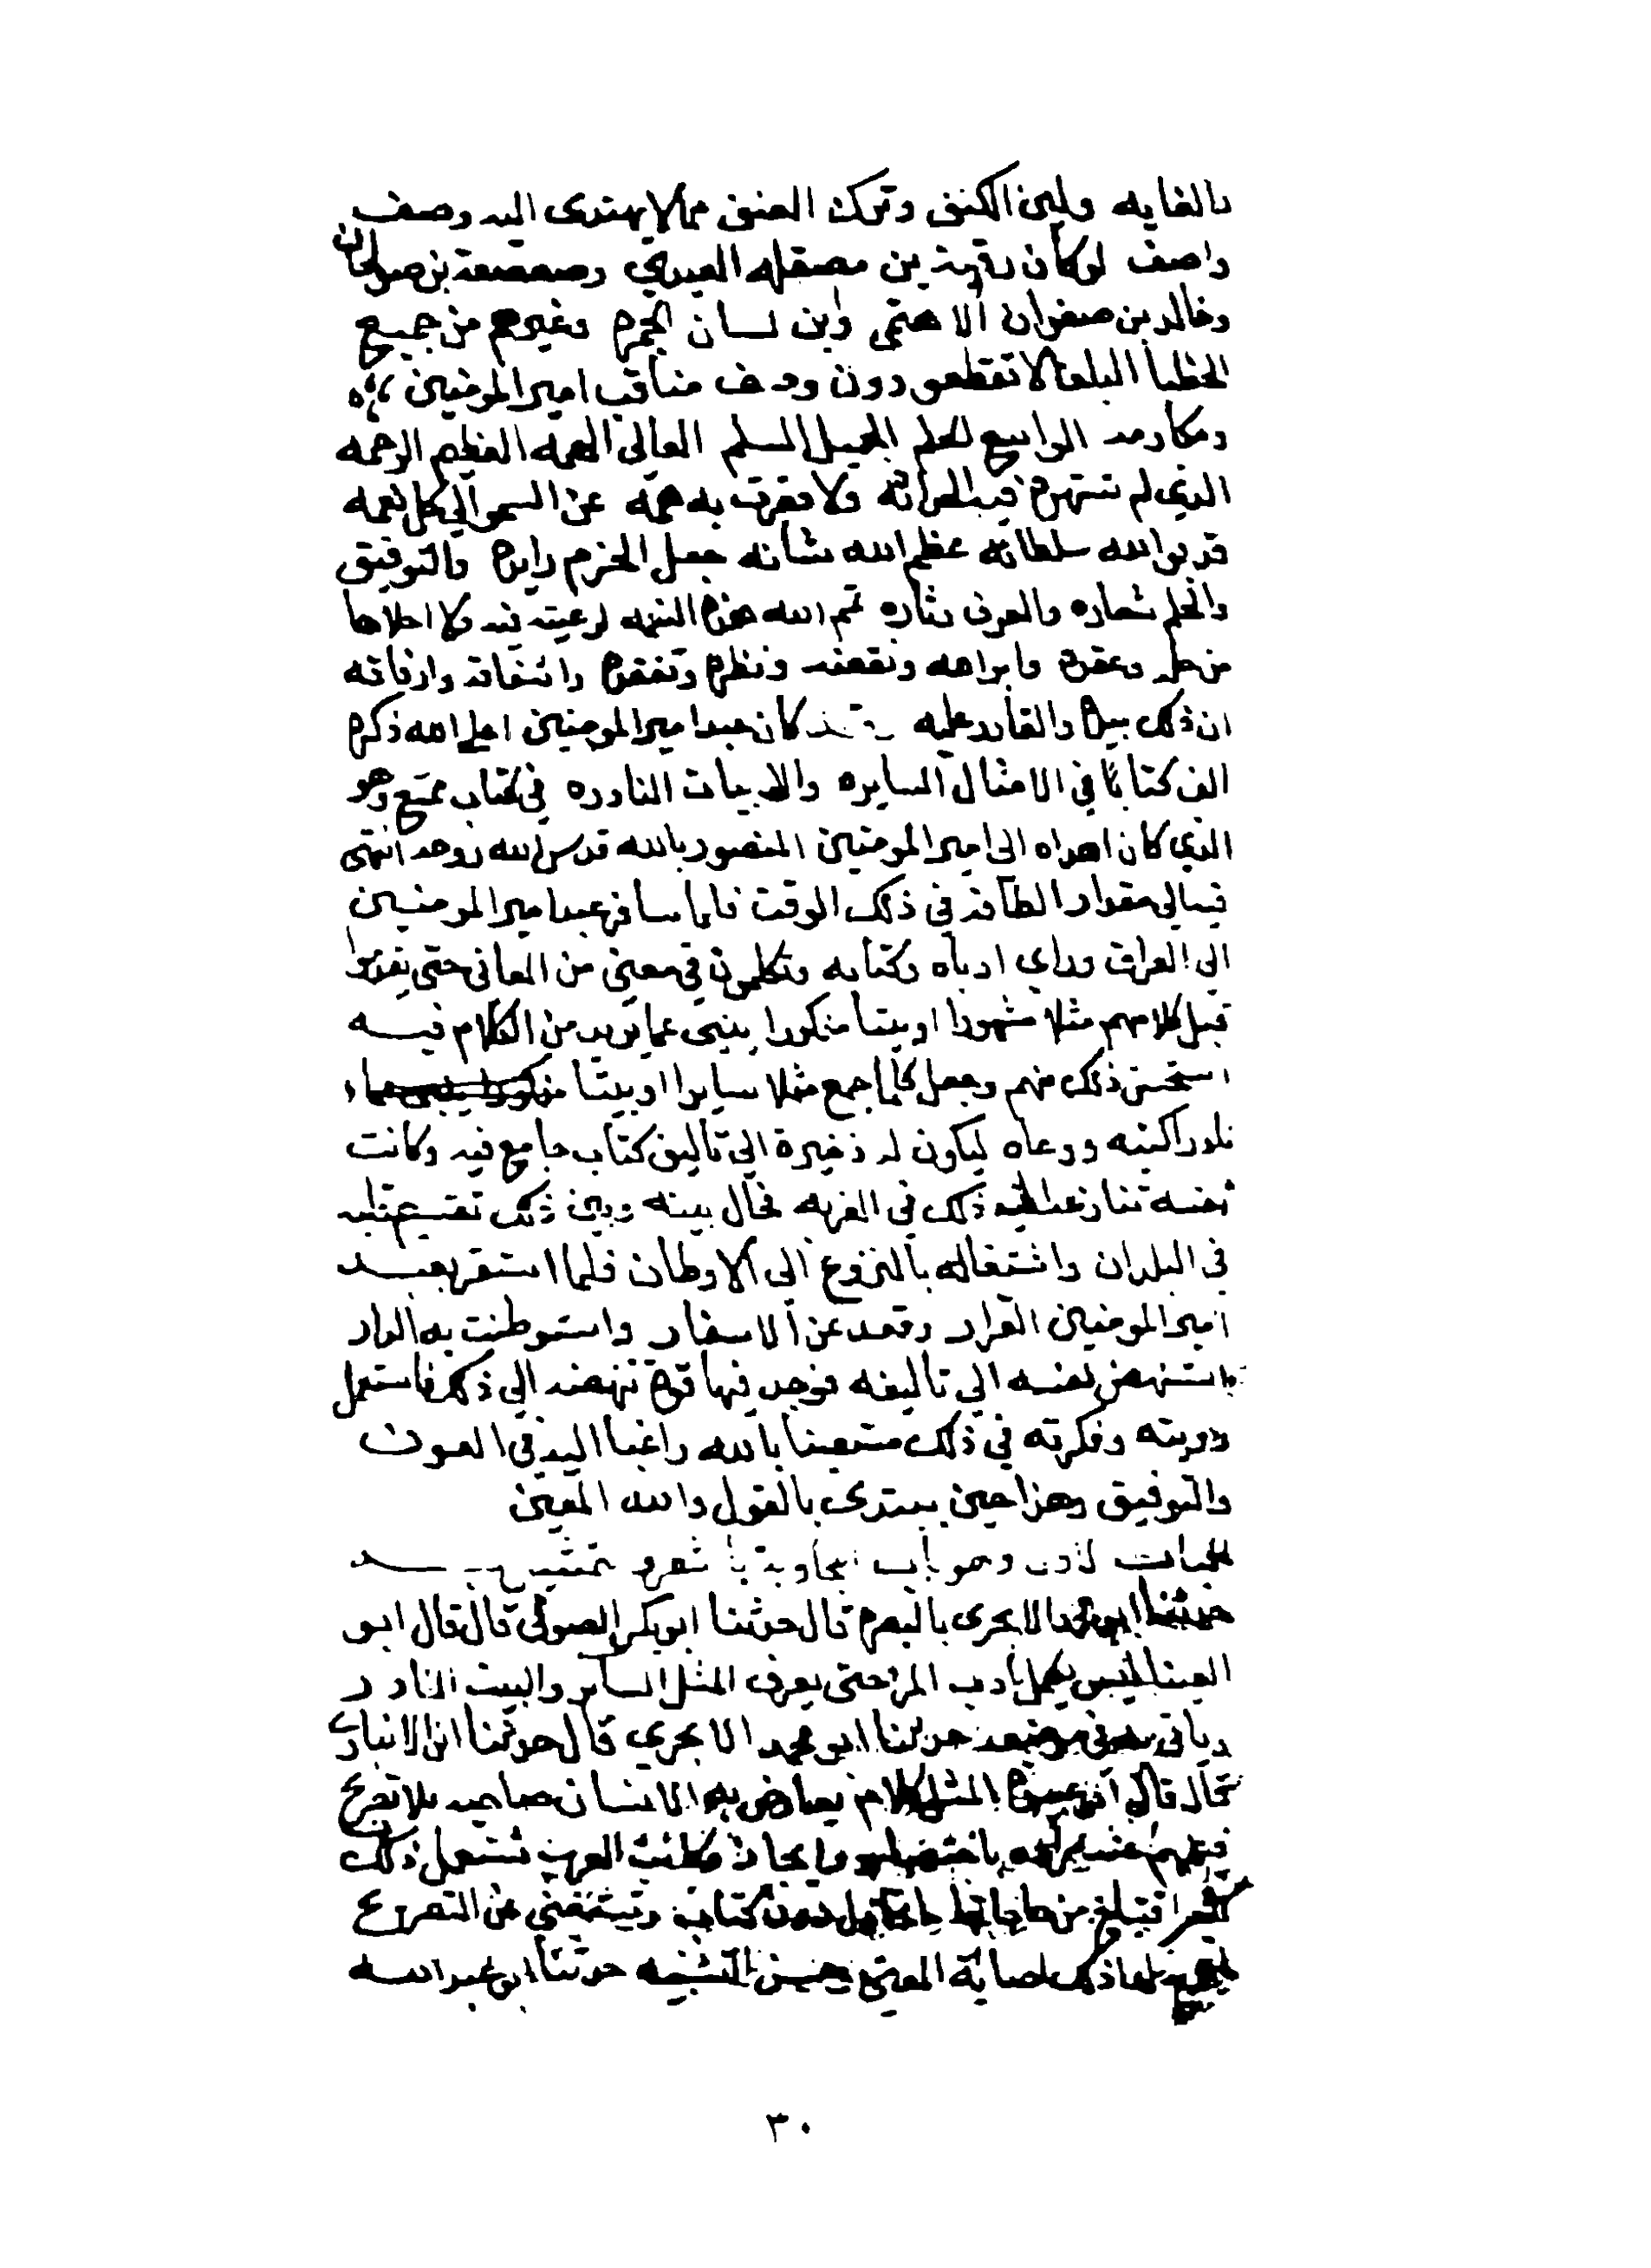 بالغايه ولين الكنف وترك العنف مما لا يهتدى اليه وصف
واصف لو كان رقبة بن مصقله العبدي وصعصعة بن صوحان
وخالد بن صفوان الاهتمى وابن لسان الحمره وغيرهم من جميع
الخطبا البلغا لانقطعو دون وصف مناقب امير المومنين
ومكارمه الواسع الحلم الجميل السلم العالى الهمه العظيم الرحمه
الذى لم ولا به همه عن السمو الى كل نعمه
قد الله سلطانه عظم الله شانه جعل الحزم رايده والتوفيق
والحلم شعاره والعرف دثاره تمم الله هذه النعمه لرعيته فيه ولا اخلاها
من حلمه وعفوه وابرامه ونقضه ونظره وتفقده واشفاقه وارفاقه
ان ذلك بيده والقادر عليه وقد كان عبد امير المومنين اعلى الله ذكره
الف كتابا فى الامثال السايره والابيات النادره فى كتاب ممتع وهو
الذي كان اهداه الى امير المومنين المنصور بالله قدس الله روحه انتهى
فيه الى مقدار الطاقة فى ذلك الوقت فلما سافر عبد امير المومنين
الى العراق وراى ادباه وكتابه يتكلمون فى معنى من المعانى حتى يقدموا
قبل كلامهم مثلا مشهورا او بيتا مذكورا ينبى عما يريد من الكلام فيه
استحسن ذلك منهم وجعل كلما جمع مثلا سايرا او بيتا
نادرا كتبه ووعاه ليكون له ذخيرة الى تاليف كتاب جامع فيه وكانت
نفسه تنازعه الى ذلك فى الغربه فحال بينه وبين ذلك تقسم قلبه
فى البلدان واشتغاله بالنزوع الى الاوطان فلما استقر بعبد
امير المومنين القرار وقعد عن الاسفار واستوطنت به الدار
استنهض نفسه الى تاليفه فوجد فيها قوة تنهضه الى ذلك فاستعمل
رويته وفكرته فى ذلك مستعينا بالله راغبا اليه فى العون
والتوفيق وهذا حين يبتدى بالقول والله المعين
وهو باب
حدثنا ابو محمد الاجرى بالبصره قال حدثنا ابو بكر الصولى قال قال ابو
العينا ليس يكمل ادب المرء حتى يعرف المثل الساير والبيت النادر
وياتى به فى موضعه حدثنا ابو محمد الاجري قال حدثنا ابن الانباري
قال قال ابو المثل كلام يعارض به الانسان صاحبه بلا تصريح
فيفهم عنه باختصار وايجاز وكانت العرب تستعمل ذلك
فتبلغ من حاجاتها وتستغنى عن التصريح
لاصابة المعنى وحسن التشبيه حدثنا ابو عبد الله
٣٠